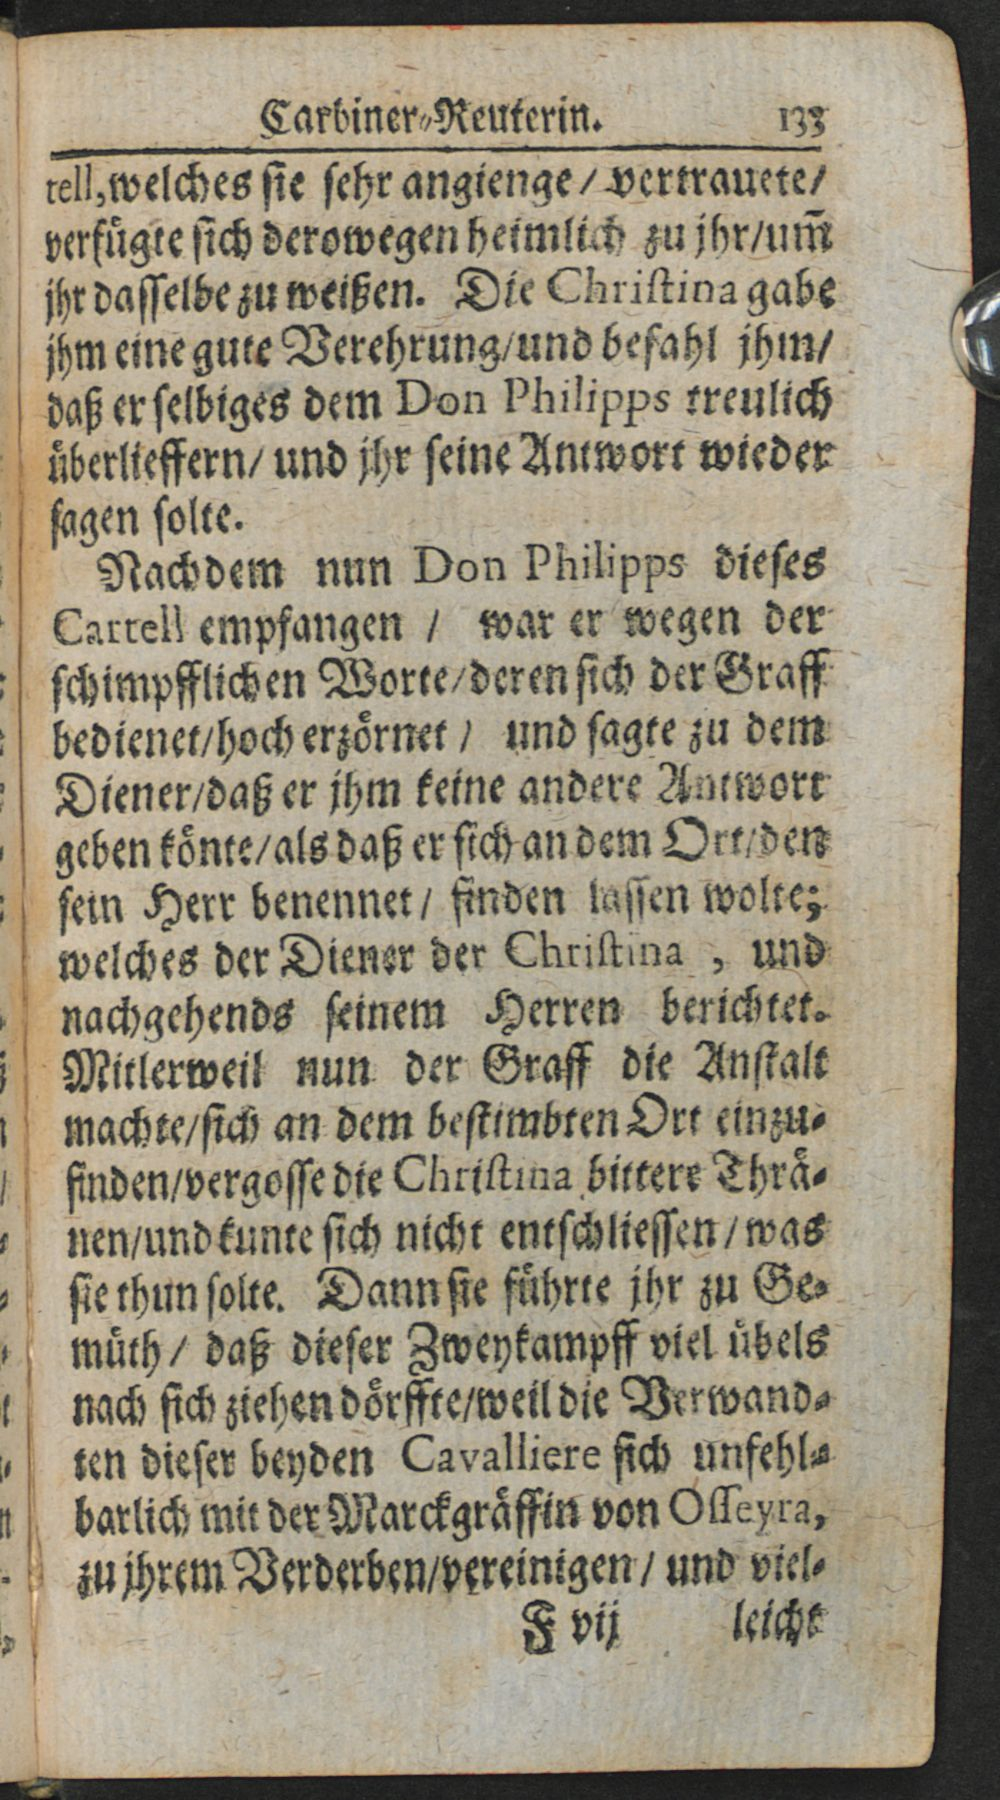 Carbiner-Reuterin. 133
tell, welches sie sehr angienge / vertrauete /
verfügte sich derowegen heimlich zu jhr / um̃
jhr dasselbe zu weißen. Die Christina gabe
jhm eine gute Verehrung / und befahl jhm /
daß er selbiges dem Don Philipps treulich
überlieffern / und jhr seine Antwort wieder
sagen solte.
Nachdem nun Don Philipps dieses
Cartell empfangen / war er wegen der
schimpfflichen Worte / deren sich der Graff
bedienet / hoch erzörnet / und sagte zu dem
Diener / daß er jhm keine andere Antwort
geben könte / als daß er sich an dem Ort / den
sein Herr benennet / finden lassen wolte;
welches der Diener der Christina, und
nachgehends seinem Herren berichtet.
Mitlerweil nun der Graff die Anstalt
machte / sich an dem bestimbten Ort einzu-
finden / vergosse die Christina bittere Thrä-
nen / und kunte sich nicht entschliessen / was
sie thun solte. Dann sie führte jhr zu Ge-
müth / daß dieser Zweykampff viel übels
nach sich ziehen dörffte / weil die Verwand-
ten dieser beyden Cavalliere sich unfehl-
barlich mit der Marckgräffin von Osseyra,
zu jhrem Verderben / vereinigen / und viel-
F vij leicht